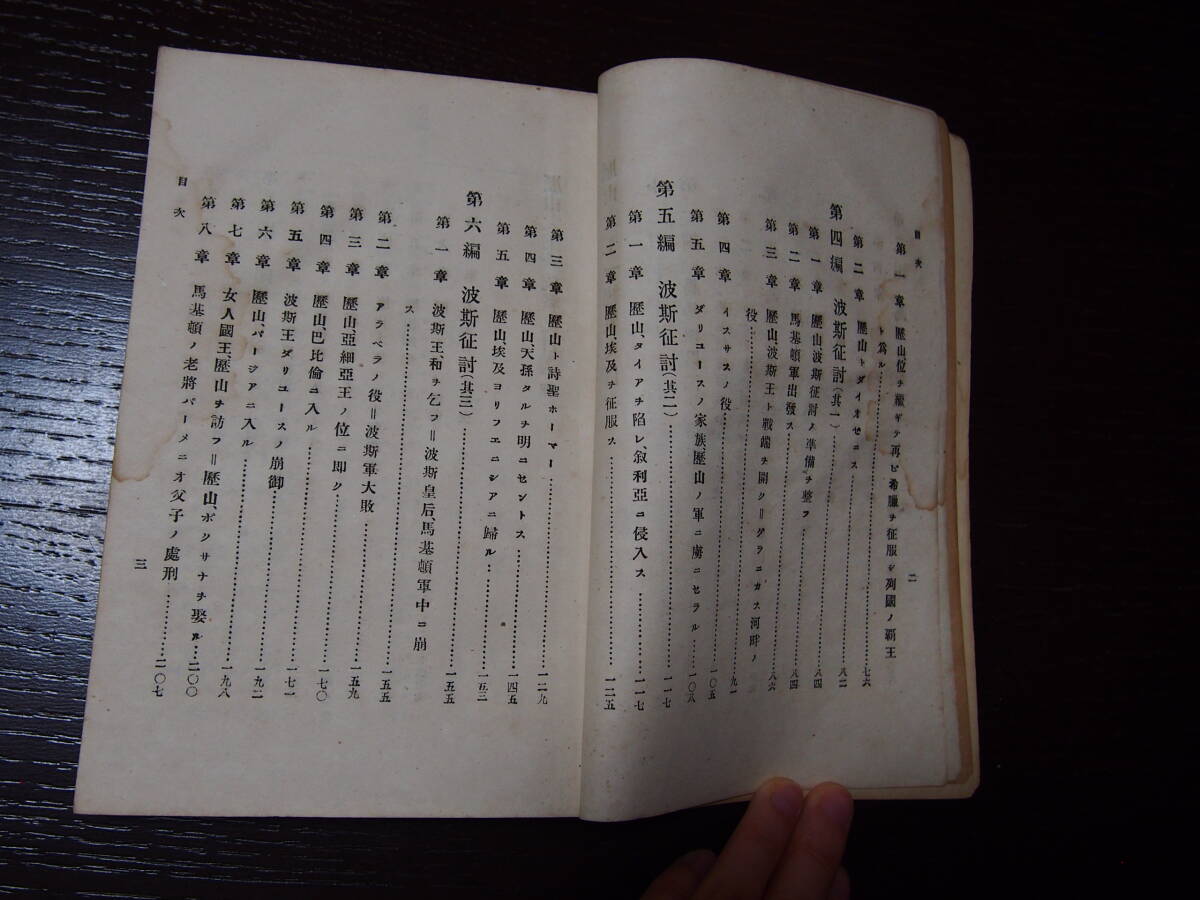 目次
二
第一章 歷山位ヲ繼ギテ再ビ希臘ヲ征服シ列國ノ覇王
ト爲ル……七六
第二章 歷山トダイオゼニス……八二
第四編 波斯征討(其一)……八四
第一章 歷山波斯征討ノ準備ヲ整フ……八四
第二章 馬基頓軍出發ス……八六
第三章 歷山、波斯王ト戰端ヲ開ク=グラニカス河畔ノ
役……九一
第四章 イスサスノ役……一〇五
第五章 ダリユースノ家族歷山ノ軍ニ虜ニセラル……一〇八
第五編 波斯征討(其二)……一一七
第一章 歷山、タイアヲ陷レ、叙利亞ニ侵入ス……一一七
第二章 歷山、埃及ヲ征服ス……一二五
第三章 歷山ト詩聖ホーマー……一二九
第四章 歷山、天孫タルヲ明ニセントス……一四五
第五章 歷山、埃及ヨリフエニシアニ歸ル……一五三
第六編 波斯征討(其三)……一五五
第一章 波斯王、和ヲ乞フ=波斯皇后、馬基頓軍中ニ崩
ス……一五五
第二章 アラベラノ役=波斯軍大敗……一五九
第三章 歷山、亞細亞王ノ位ニ即ク……一七〇
第四章 歷山、巴比倫ニ入ル……一七一
第五章 波斯王ダリユースノ崩御……一九二
第六章 歷山、パージアニ入ル……一九八
第七章 女人國王、歷山ヲ訪フ=歷山、ボクサナヲ娶ル……二〇〇
第八章 馬基頓ノ老將パーメニオ父子ノ處刑……二〇七
目次
三